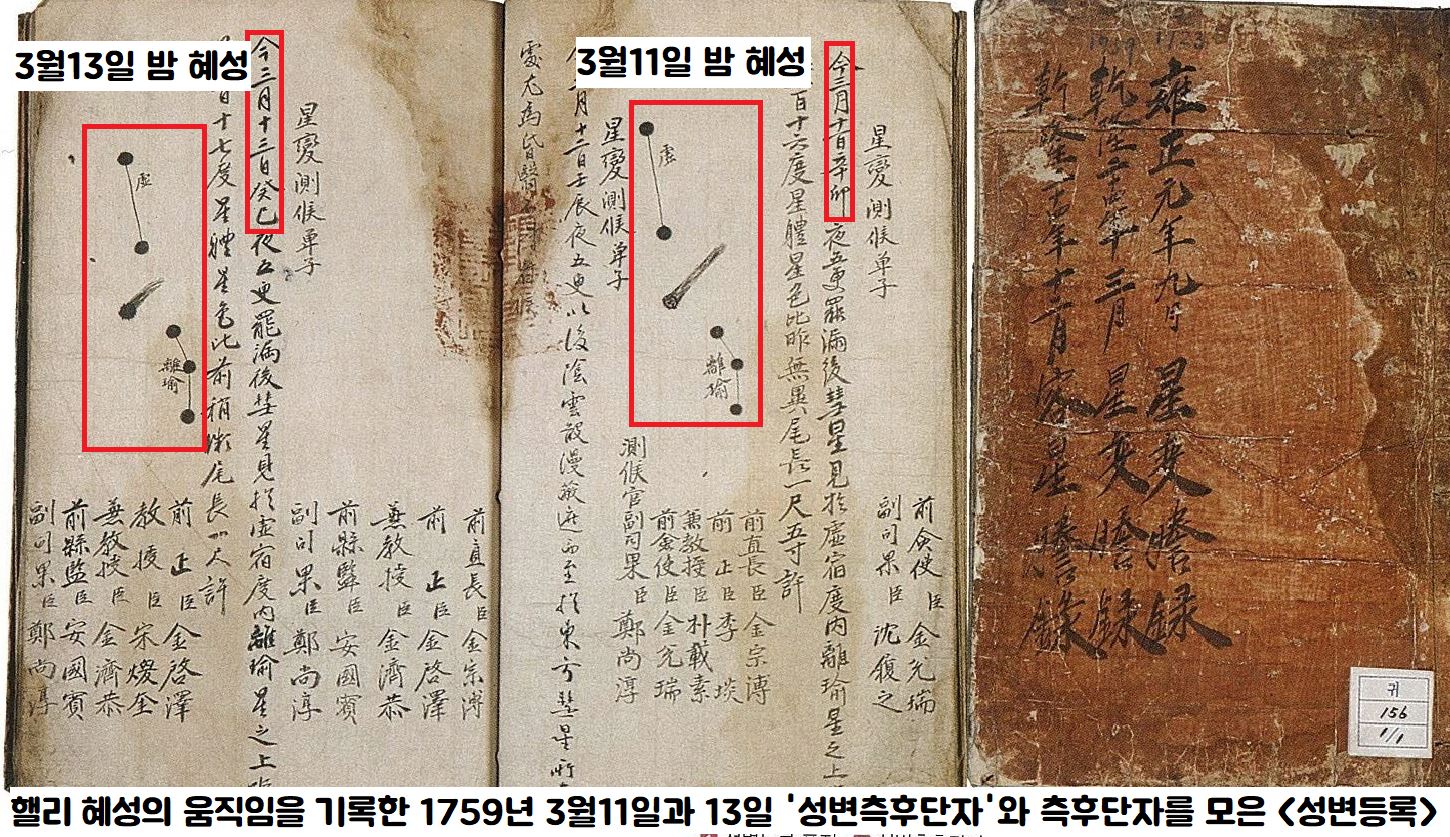 3월13일 밤 혜성
3월11일 밤 혜성
雍正元年九月 星变謄録
乾隆二十四年三月 星变謄録
乾隆二十四年十二月 客星謄録
귀
156
1/1
星變測候單子
今三月十一日辛卯夜五更罷漏後彗星見於虛宿度內離瑜星之上
百十六度星體星色比昨無異尾長一尺五寸許
虛
離瑜
前僉使臣 金允瑞
副司果臣 沈復之
前直長臣 金宗溥
前正臣 李琰
兼教授臣 朴載素
前僉使臣 金允瑞
測候官副司果臣 鄭尚淳
星變測候單子
月十二日壬辰夜五更以後陰雲散漫蔽遮而至於東方彗星所
處尤爲昏翳
星變測候單子
今三月十三日癸巳夜五更罷漏後彗星見於虛宿度內離瑜星之上
百十七度星體星色比前稍微尾長一尺許
虛
離瑜
前直長臣 金宗溥
前正臣 金啓澤
兼教授臣 金濟恭
前縣監臣 安國賓
副司果臣 鄭尚淳
前正臣 金啓澤
教授臣 宋燮金
兼教授臣 金濟恭
前縣監臣 安國賓
副司果臣 鄭尚淳
핼리 혜성의 움직임을 기록한 1759년 3월11일과 13일 '성변측후단자'와 측후단자를 모은 <성변등록>